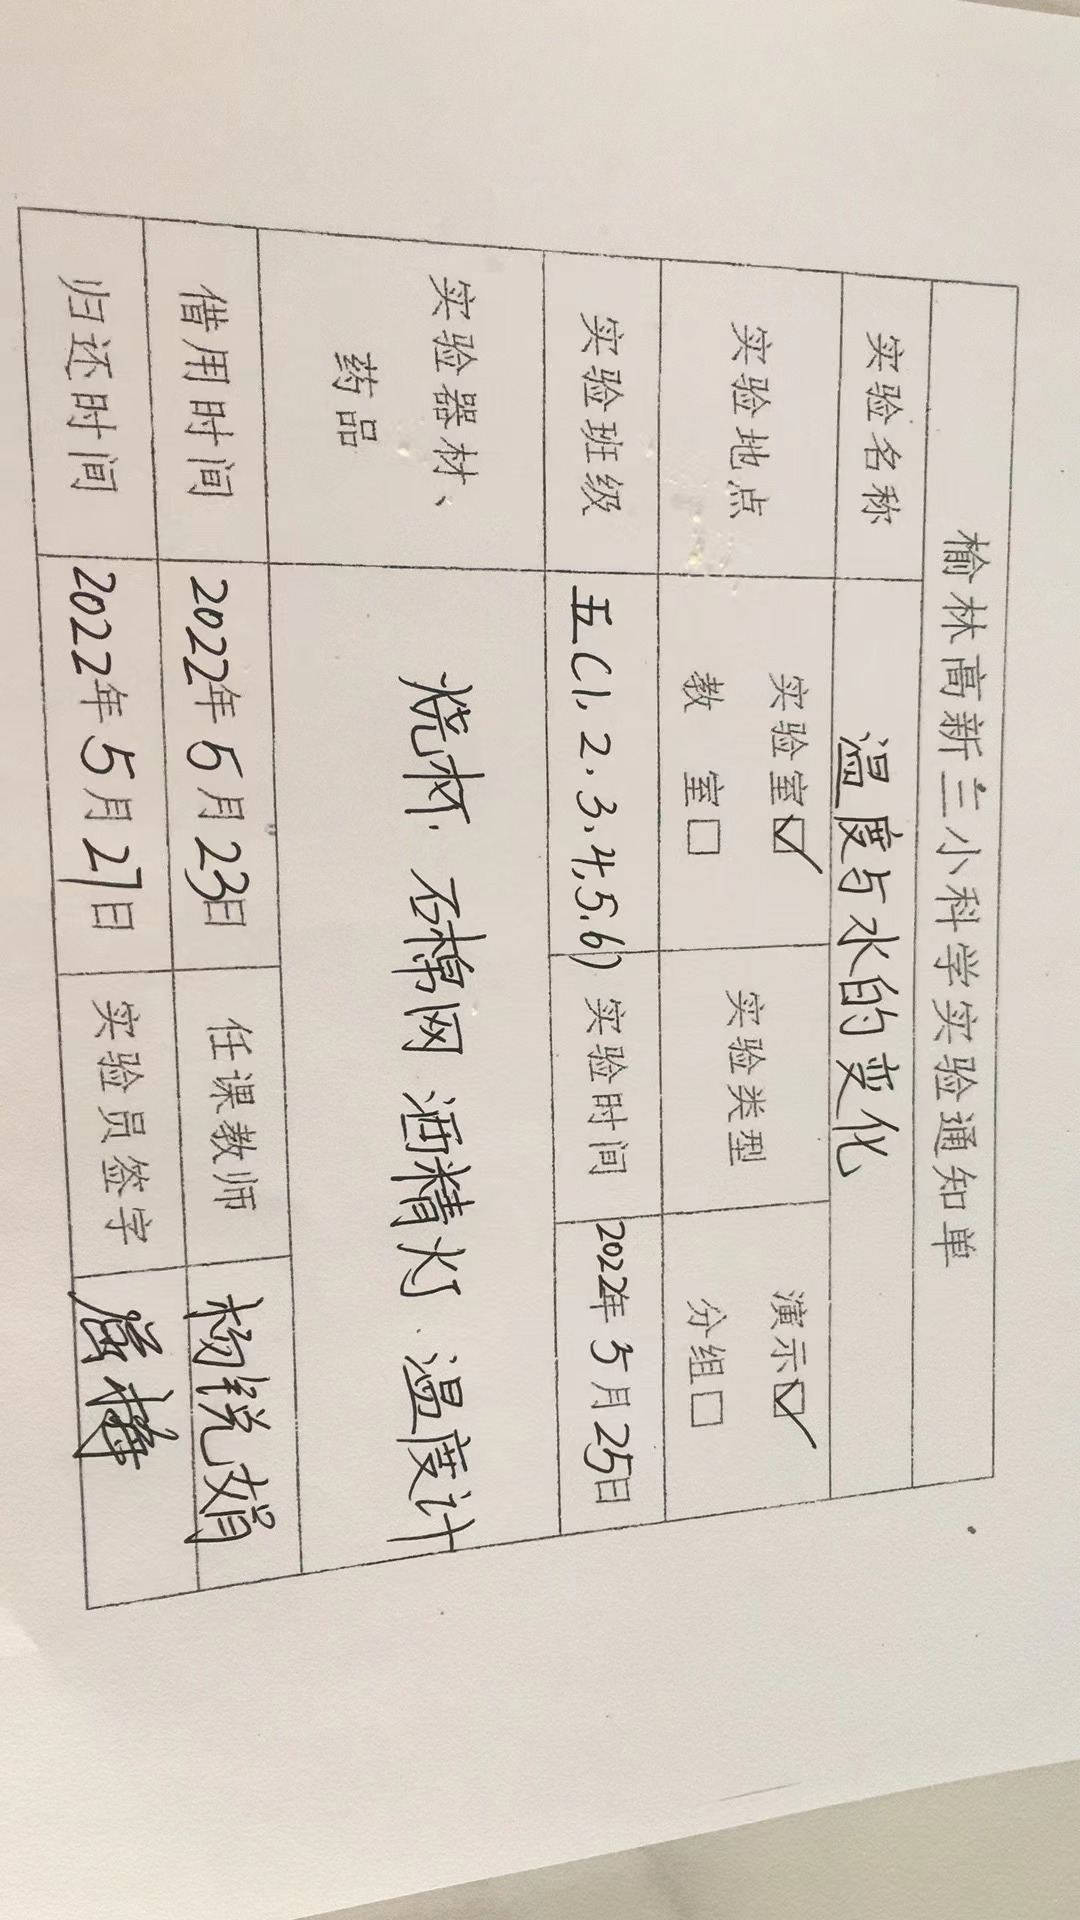 榆林高新三小科学实验通知单
实验名称 温度与水的变化
实验地点 实验室☑ 教 室□ 实验类型 演示☑ 分组□
实验班级 五(1,2.3.4,5.6) 实验时间 2022年5月25日
实验器材、药品 烧杯. 石棉网 酒精灯. 温度计
借用时间 2022年5月23日 任课教师 杨锐娟
归还时间 2022年5月27日 实验员签字